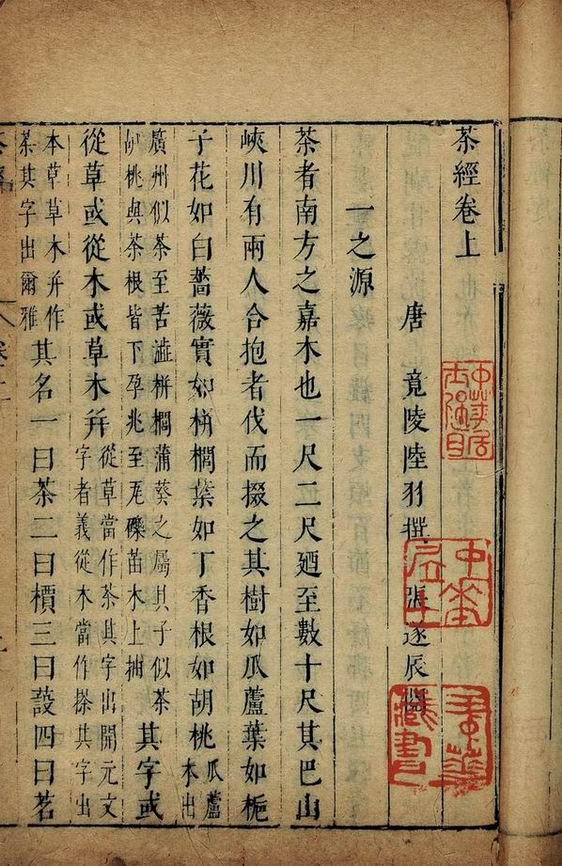 茶經卷上
唐 竟陵陸羽撰 張遂辰閱
一之源
茶者南方之嘉木也一尺二尺廼至數十尺其巴山
峽川有兩人合抱者伐而掇之其樹如瓜蘆葉如梔
子花如白薔薇實如栟櫚葉如丁香根如胡桃
瓜蘆
本出
廣州似茶至苦澁栟櫚蒲葵之屬其子似茶
胡桃與茶根皆下孕兆至瓦礫苗木上抽
其字或
從草或從木或草木并
從草當作茶其字出開元文
字者義從木當作搽其字出
本草草木并作
荼其字出爾雅
其名一曰茶二曰檟三曰蔎四曰茗
中華居士
藏書